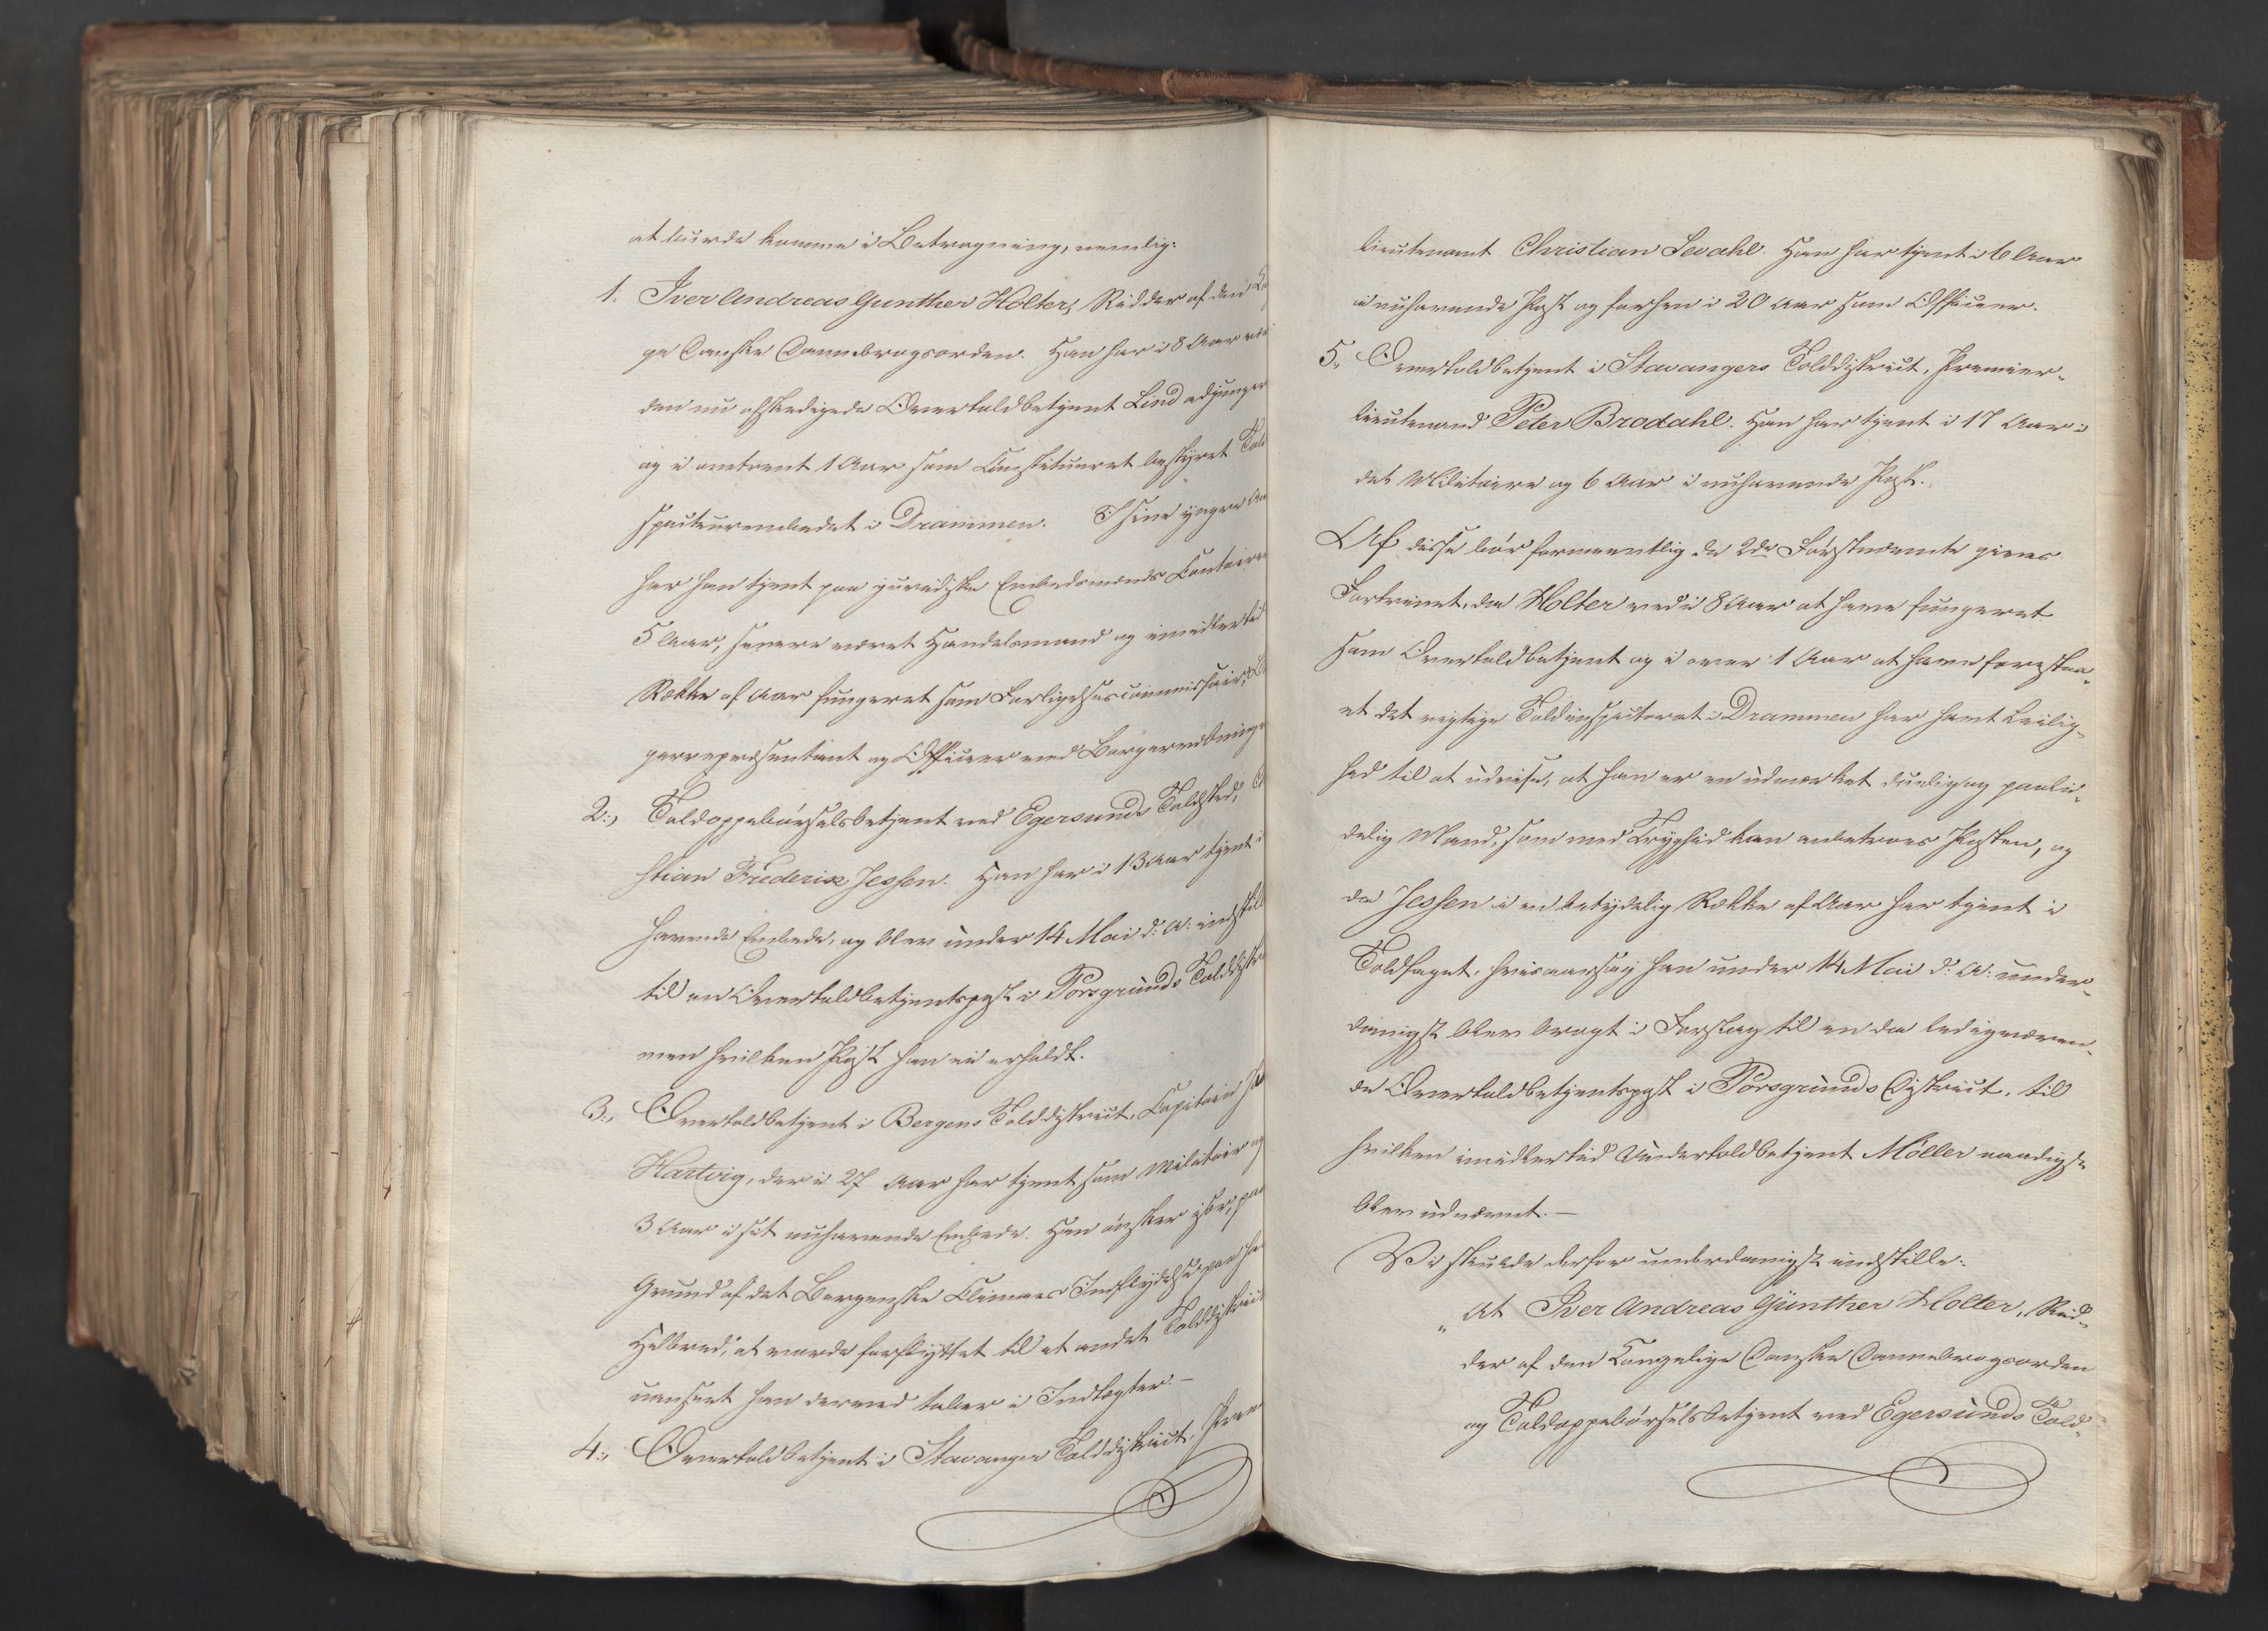 at burde komme i Betragtning, nemlig:
1. Iver Andreas Gunther Holter, Ridder af den
ge Danske Dannebrogsorden. Han har i 8 Aar
den nu afskedigede Overtoldbetjent Lind adjunger
og i omtrent 1 Aar som Constitueret bestyret Told
specteurembedet i Drammen. I sine yngre Aa
har han tjent paa juridiske Embedsmænds Contoirer
5 Aar, senere været Handelsmand og imidlertid
Række af Aar fungeret som Forligelsescommissair,
gerrepræsentant og Officeer ved Borgervæbninge
2., Toldoppebørselsbetjent ved Egersunds Toldsted,
stian Friederik Jessen. Han har i 13 Aar tjent i
havende Embede, og blev under 14 Mai d: A: indstil
til en Overtoldbetjentspost i Porsgrunds Tolddistr
men hvilken Post han ei erholdt.
3., Overtoldbetjent i Bergens Tolddistrict, Capitain
Hartvig, der i 27 Aar har tjent som Militair og
3 Aar i sit nuhavende Embede. Han ønsker især, paa
Grund af det Bergenske Climaes Indflydelse paa ha
Helbred, at vorde forflyttet til et andet Tolddistrict
uanseet han derved taber i Indtægter. –
4., Overtoldbetjent i Stavanger Tolddistrict, Prem
lieutenant Christian Sevahl. Han har tjent i 6 Aar
i nuhavende Post og forhen i 20 Aar som Officeer.
5., Overtoldbetjent i Stavangers Tolddistrict, Premier-
lieutenand Peter Brodahl. Han har tjent i 17 Aar i
det Militaire og 6 Aar i nuhavende Post.
Af disse bør formeentlig de 2de Førstnævnte gives
Fortrinet, da Holter ved i 8 Aar at have fungeret
som Overtoldbetjent og i over 1 Aar at have forestaa-
et det vigtige Toldinspectorat i Drammen har havt Leilig-
hed til at udvise, at han er en udmærket duelig og paali-
delig Mand, som med Tryghed kan anbetroes Posten, og
da Jessen i en betydelig Række af Aar har tjent i
Toldfaget, hvisaarsag han under 14 Mai d: A: under-
danigst blev bragt i Forslag til en da ledigværen-
de Overtoldbetjentspost i Porsgrunds District, til
hvilken imidlertid Undertoldbetjent Möller naadigst
blev udnævnt. –
Vi skulde derfor underdanigst indstille:
„At Iver Andreas Günther Holter, Rid-
der af den Kongelige Danske Dannebrogsorden
og Toldoppebørselsbetjent ved Egersunds Told-